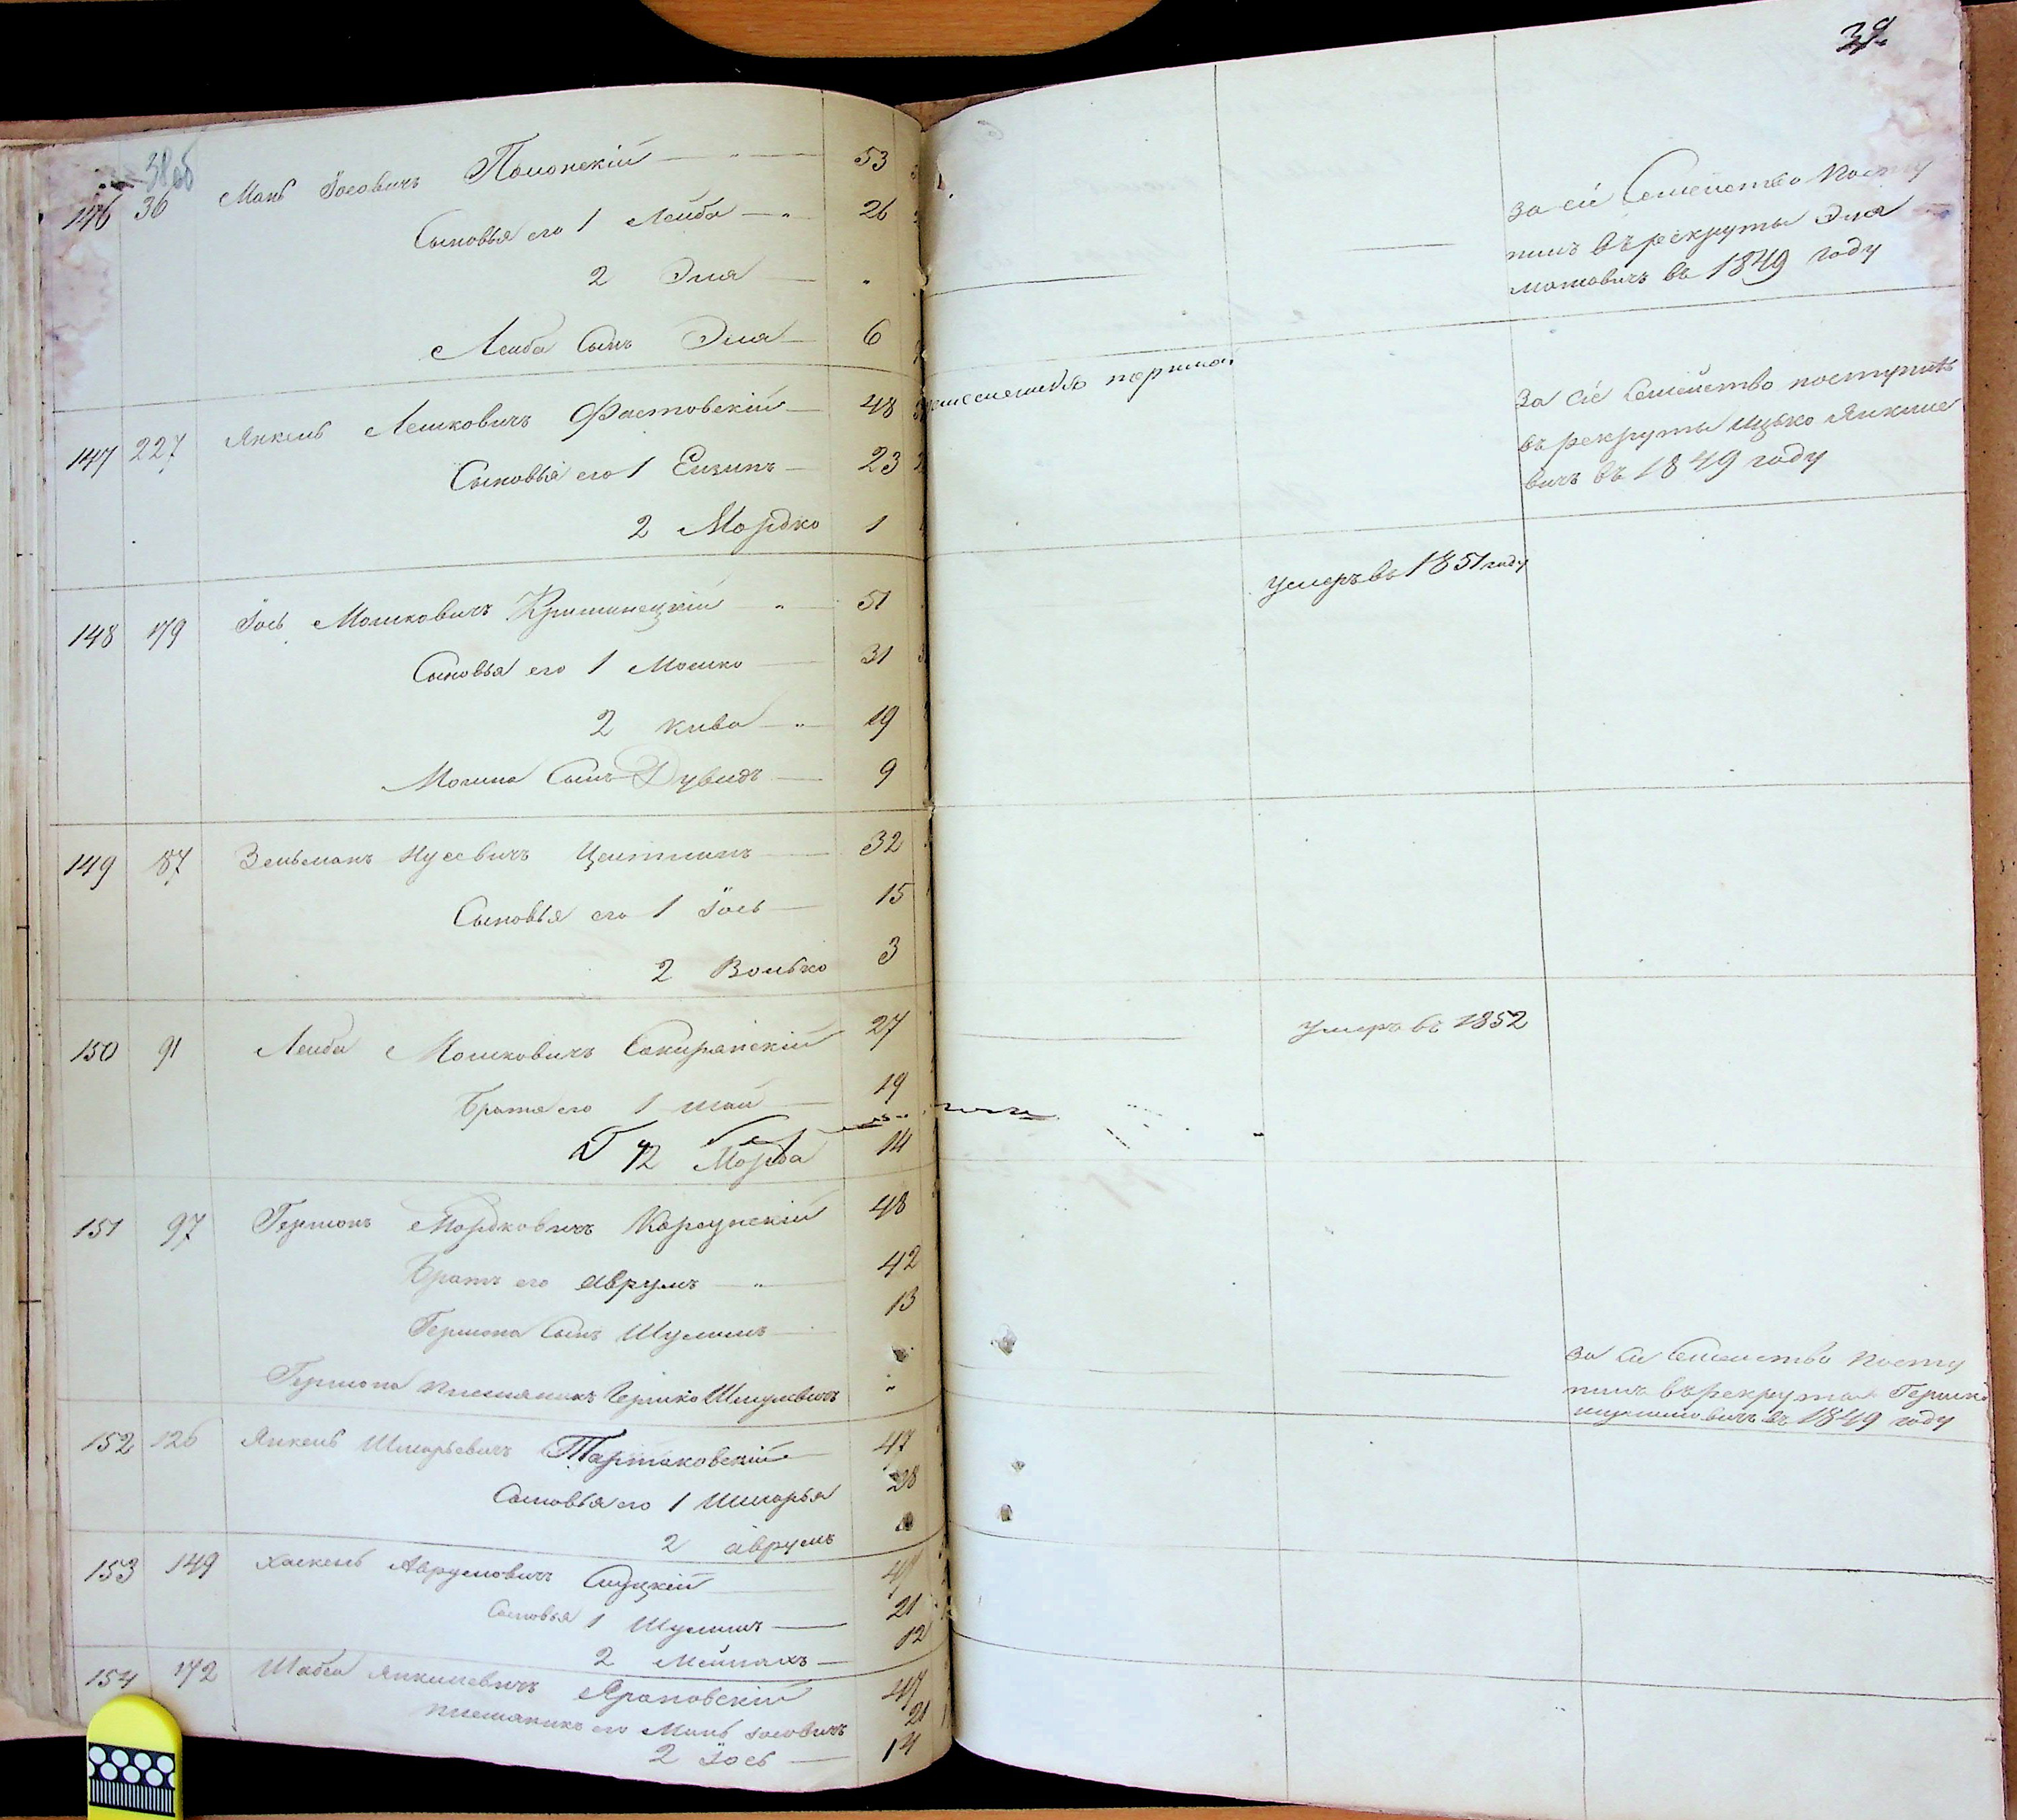 38об
39
146 36 Мань Іосовичъ Полонскій 53
Сыновья его 1 Лейба 26
2 Эля
Лейба Сынъ Эля 6
за сіе Семейство Посту
пилъ въ рекруты Эля
въ 1849 году
147 227 Янкель Лейковичъ Фастовскій 48
Сыновья его 1 Ейзипъ 23
2 Мордко 1
за сіе Семейство поступилъ
въ рекруты Ицько Янкиле
вичъ въ 1849 году
148 179 Іось Мошковичъ 51
Сыновья его 1 Мошко 31
2 Кива 19
Мошка Сынъ Дувидъ 9
умеръ въ 1851 году
149 87 Зельманъ Нусевичъ Цейтлинъ 32
Сыновья его 1 Іось 15
2 Волько 3
150 91 Лейба Мошковичъ Сокирянскій 27
Братья его 1 Шая 19
2 14
умеръ въ 1852
151 97 Гершонъ Мордковичъ Корсунскій 48
Братъ его Аврумъ 42
Гершона Сынъ Шулимъ 13
Гершона племянникъ Гершко Шмулевичъ
за сіе Семейство Посту
пилъ въ рекруты Гершко
въ 1849 году
152 126 Янкель Шмарьевичъ Тартаковскій 47
Сыновья его 1 Шмарья 28
2 Аврумъ
153 149 Хаскель Аврумовичъ Слуцкій 47
Сыновья 1 Шулимъ 21
2 12
154 172 Шабса Янкилевичъ 47
племянникъ его Мань Іосовичъ 21
2 Іось 14